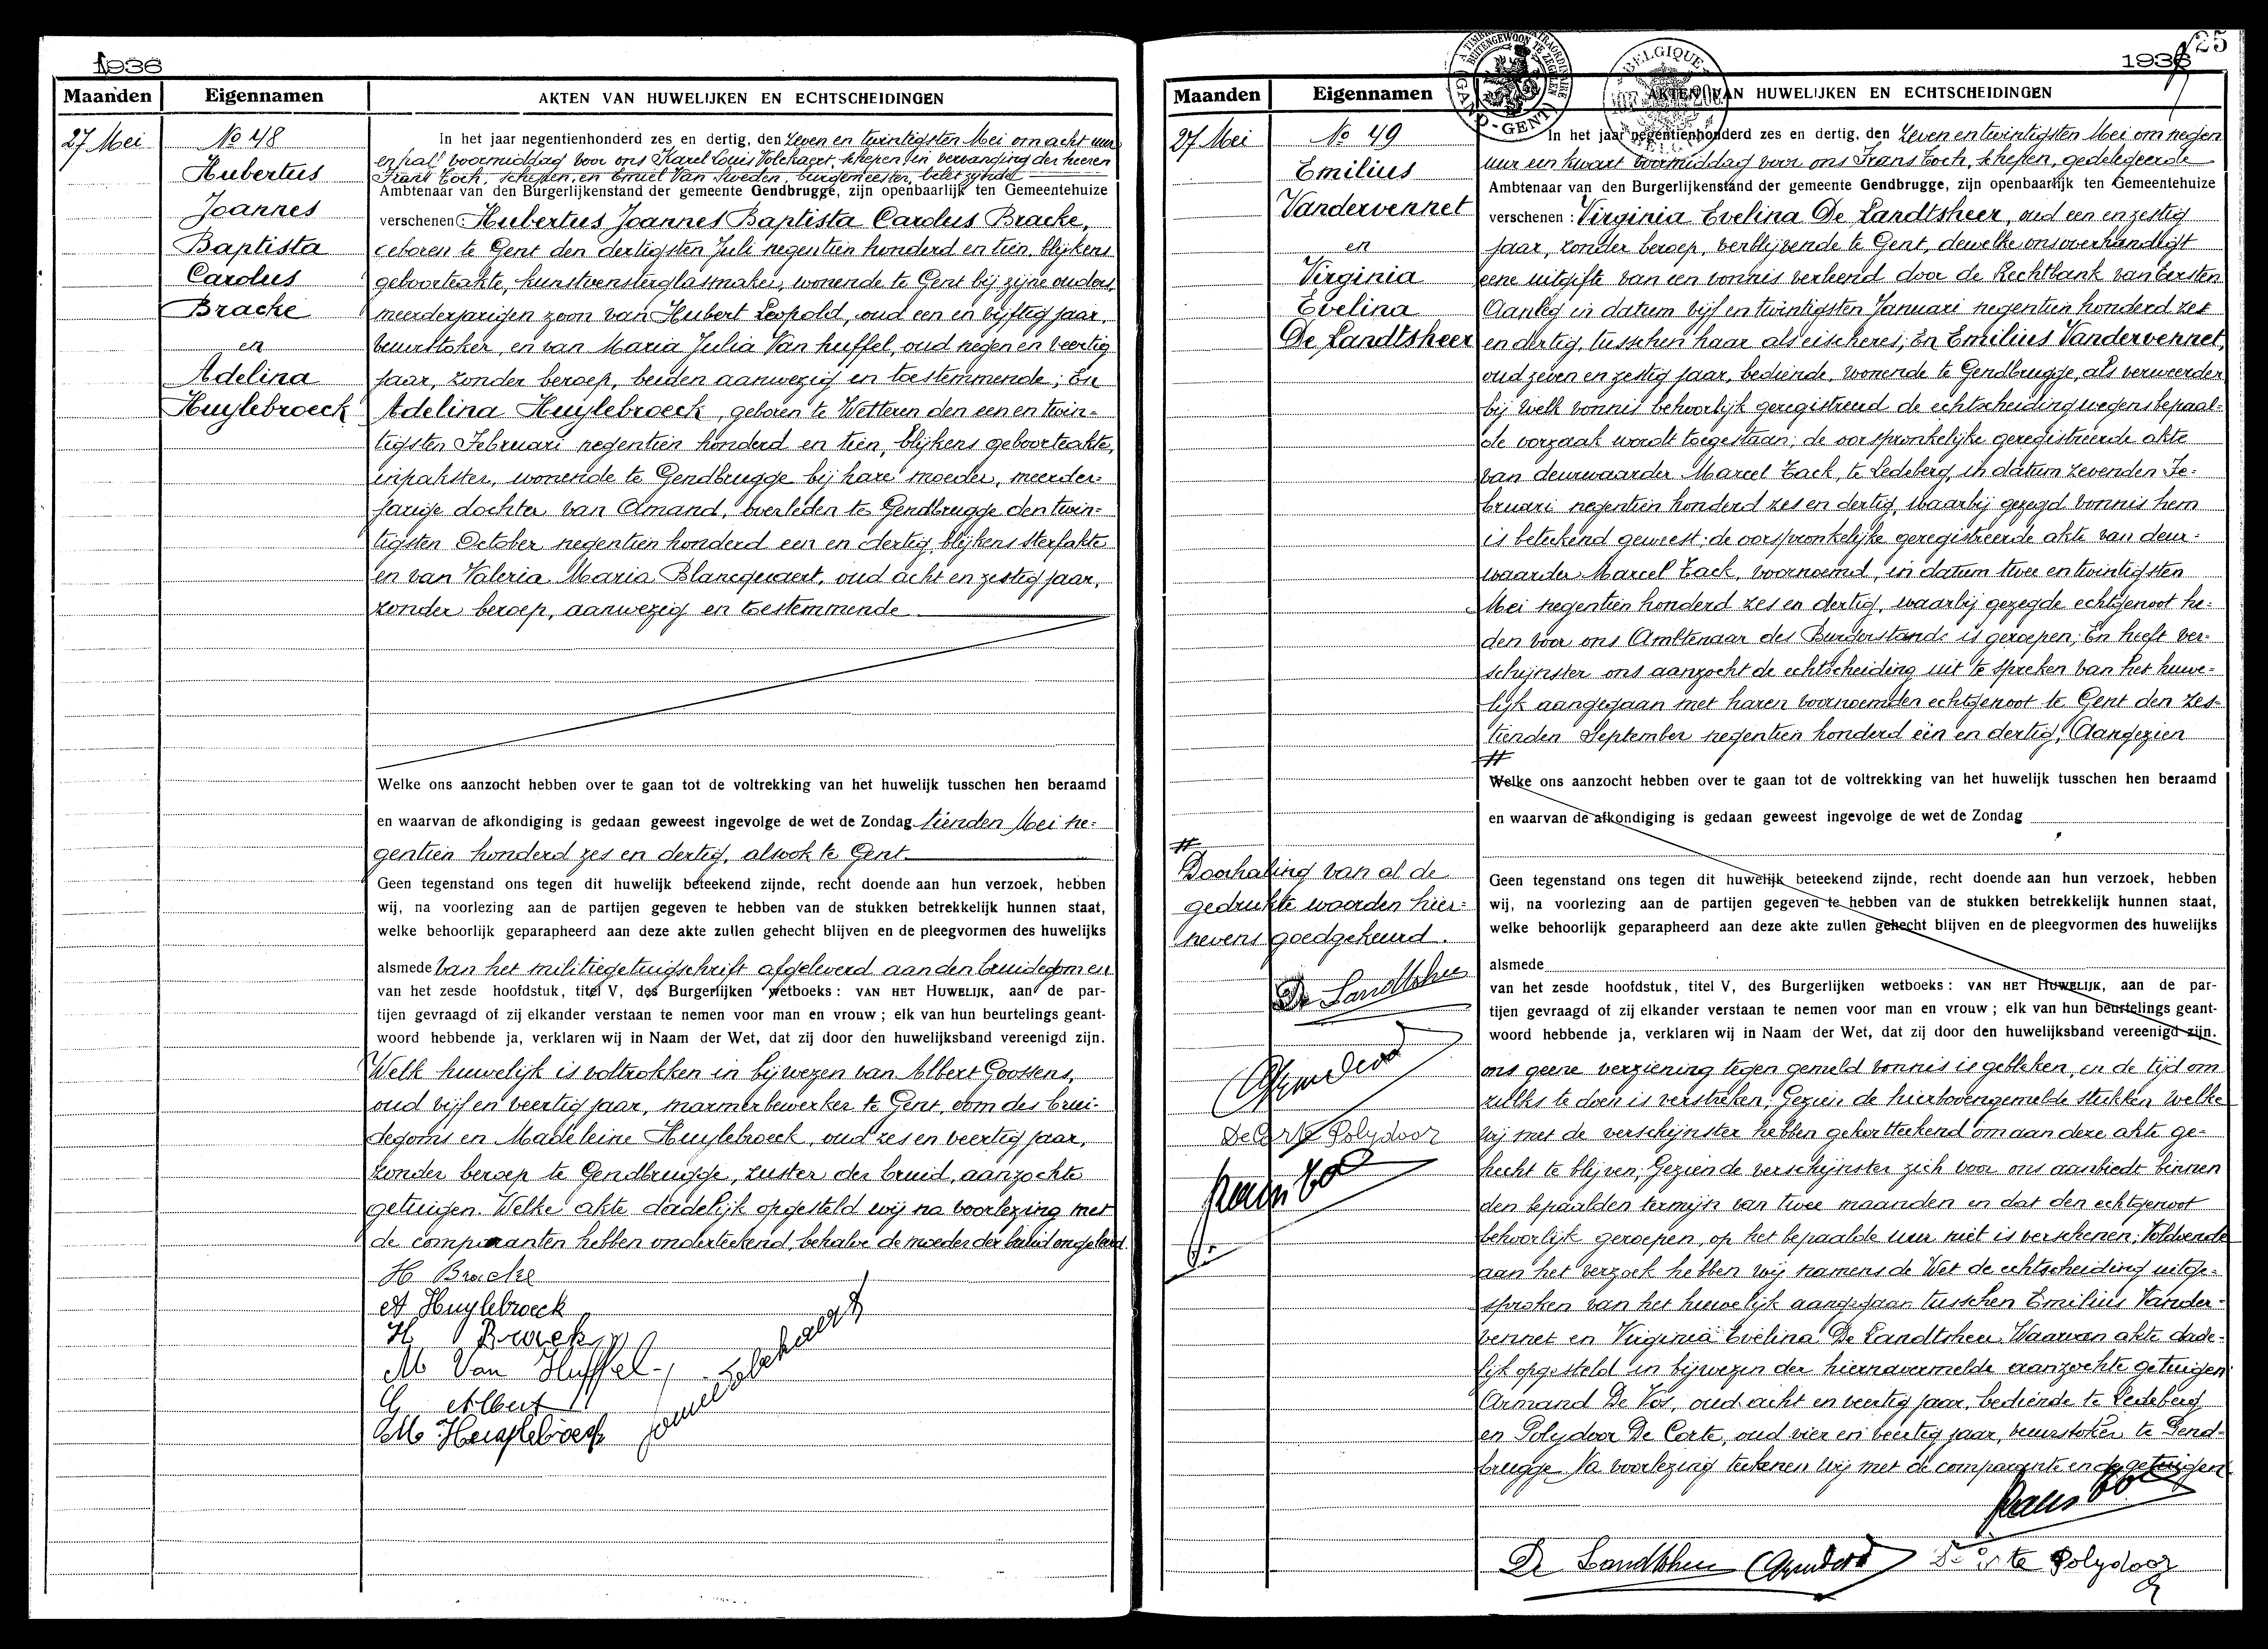 1936
Maanden
Eigennamen
AKTEN VAN HUWELIJKEN EN ECHTSCHEIDINGEN
27 Mei
No 48
Hubertus
Joannes
Baptista
Carolus
Bracke
en
Adelina
Huylebroeck
In het jaar negentienhonderd zes en dertig, den zeven en twintigsten Mei om acht uur
en half voormiddag voor ons Karel Louis Volckaert, schepen in vervanging der heeren
Frans Toch, schepen, en Emiel Van Sweden, burgemeester, belet zijnde
Ambtenaar van den Burgerlijkenstand der gemeente Gendbrugge, zijn openbaarlijk ten Gemeentehuize
verschenen: Hubertus Joannes Baptista Carolus Bracke,
geboren te Gent den dertigsten Juli negentien honderd en tien, blijkens
geboorteakte, kunstvensterglasmaker, wonende te Gent bij zijne ouders,
meerderjarigen zoon van Hubert Leopold, oud een en vijftig jaar,
vuurstoker, en van Maria Julia Van huffel, oud negen en veertig
jaar, zonder beroep, beiden aanwezig en toestemmende; En
Adelina Huylebroeck, geboren te Wetteren den een en twin-
tigsten Februari negentien honderd en tien, blijkens geboorteakte,
inpakster, wonende te Gendbrugge bij hare moeder, meerder-
jarige dochter van Amand, overleden te Gendbrugge den twin-
tigsten October negentien honderd een en dertig, blijkens sterfakte
en van Valeria Maria Blancquaert, oud acht en zestig jaar,
zonder beroep, aanwezig en toestemmende
Welke ons aanzocht hebben over te gaan tot de voltrekking van het huwelijk tusschen hen beraamd
en waarvan de afkondiging is gedaan geweest ingevolge de wet de Zondag tienden Mei ne-
gentien honderd zes en dertig, alsook te Gent
Geen tegenstand ons tegen dit huwelijk beteekend zijnde, recht doende aan hun verzoek, hebben
wij, na voorlezing aan de partijen gegeven te hebben van de stukken betrekkelijk hunnen staat,
welke behoorlijk geparapheerd aan deze akte zullen gehecht blijven en de pleegvormen des huwelijks
alsmede van het militiegetuigschrift afgeleverd aan den bruidegom en
van het zesde hoofdstuk, titel V, des Burgerlijken wetboeks: VAN HET HUWELIJK, aan de par-
tijen gevraagd of zij elkander verstaan te nemen voor man en vrouw; elk van hun beurtelings geant-
woord hebbende ja, verklaren wij in Naam der Wet, dat zij door den huwelijksband vereenigd zijn.
Welk huwelijk is voltrokken in bijwezen van Albert Goossens,
oud vijf en veertig jaar, marmerbewerker te Gent, oom des brui-
degoms en Madeleine Huylebroeck, oud zes en veertig jaar,
zonder beroep te Gendbrugge, zuster der bruid, aanzochte
getuigen. Welke akte dadelijk opgesteld wij na voorlezing met
de comparanten hebben onderteekend, behalve de moeder der bruid ongeleerd.
H Bracke
A Huylebroeck
H Bracke
M Van Huffel
G Albert
M Huylebroeck
125
1936
Maanden
Eigennamen
AKTEN VAN HUWELIJKEN EN ECHTSCHEIDINGEN
27 Mei
No 49
Emilius
Vandervennet
en
Virginia
Evelina
De Landtsheer
In het jaar negentienhonderd zes en dertig, den zeven en twintigsten Mei om negen
uur een kwart voormiddag voor ons Frans Toch, schepen, gedelegeerde
Ambtenaar van den Burgerlijkenstand der gemeente Gendbrugge, zijn openbaarlijk ten Gemeentehuize
verschenen: Virginia Evelina De Landtsheer, oud een en zestig
jaar, zonder beroep, verblijvende te Gent, dewelke ons overhandigt
eene uitgifte van een vonnis verleend door de Rechtbank van Eersten
Aanleg in datum vijf en twintigsten Januari negentien honderd zes
en dertig, tusschen haar als eischeres; En Emilius Vandervennet,
oud zeven en zestig jaar, bediende, wonende te Gendbrugge, als verweerder
bij welk vonnis behoorlijk geregistreerd de echtscheiding wegens bepaal-
de oorzaak wordt toegestaan; de oorspronkelijke geregistreerde akte
van deurwaarder Marcel Tack, te Ledeberg, in datum zevenden Fe-
bruari negentien honderd zes en dertig, waarbij gezegd vonnis hem
is beteekend geweest; de oorspronkelijke geregistreerde akte van deur-
waarder Marcel Tack, voornoemd, in datum twee en twintigsten
Mei negentien honderd zes en dertig, waarbij gezegde echtgenoot he-
den voor ons Ambtenaar des Burgerstands is geroepen; En heeft ver-
schijnster ons aanzocht de echtscheiding uit te spreken van het huwe-
lijk aangegaan met haren voornoemden echtgenoot te Gent den zes-
tienden September negentien honderd één en dertig; Aangezien
#
Welke ons aanzocht hebben over te gaan tot de voltrekking van het huwelijk tusschen hen beraamd
en waarvan de afkondiging is gedaan geweest ingevolge de wet de Zondag
Geen tegenstand ons tegen dit huwelijk beteekend zijnde, recht doende aan hun verzoek, hebben
wij, na voorlezing aan de partijen gegeven te hebben van de stukken betrekkelijk hunnen staat,
welke behoorlijk geparapheerd aan deze akte zullen gehecht blijven en de pleegvormen des huwelijks
alsmede
van het zesde hoofdstuk, titel V, des Burgerlijken wetboeks: VAN HET HUWELIJK, aan de par-
tijen gevraagd of zij elkander verstaan te nemen voor man en vrouw; elk van hun beurtelings geant-
woord hebbende ja, verklaren wij in Naam der Wet, dat zij door den huwelijksband vereenigd zijn.
#
Doorhaling van al de
gedrukte woorden hier-
nevens goedgekeurd.
De Landtsheer
De Corte Polydoor
ons geene verziening tegen gemeld vonnis is gebleken, en de tijd om
zulks te doen is verstreken; Gezien de hierbovengemelde stukken welke
wij met de verschijnster hebben gekortteekend om aan deze akte ge-
hecht te blijven; Gezien de verschijnster zich voor ons aanbiedt binnen
den bepaalden termijn van twee maanden en dat den echtgenoot
behoorlijk geroepen, op het bepaalde uur niet is verschenen; Voldoende
aan het verzoek hebben wij namens de Wet de echtscheiding uitge-
sproken van het huwelijk aangegaan tusschen Emilius Vander-
vennet en Virginia Evelina De Landtsheer. Waarvan akte dade-
lijk opgesteld in bijwezen der hiernavermelde aanzochte getuigen
Armand De Vos, oud acht en veertig jaar, bediende te Ledeberg
en Polydoor De Corte, oud vier en veertig jaar, vuurstoker te Gend-
brugge. Na voorlezing teekenen wij met de comparante en de getuigen
De Landtsheer
De Corte Polydoor